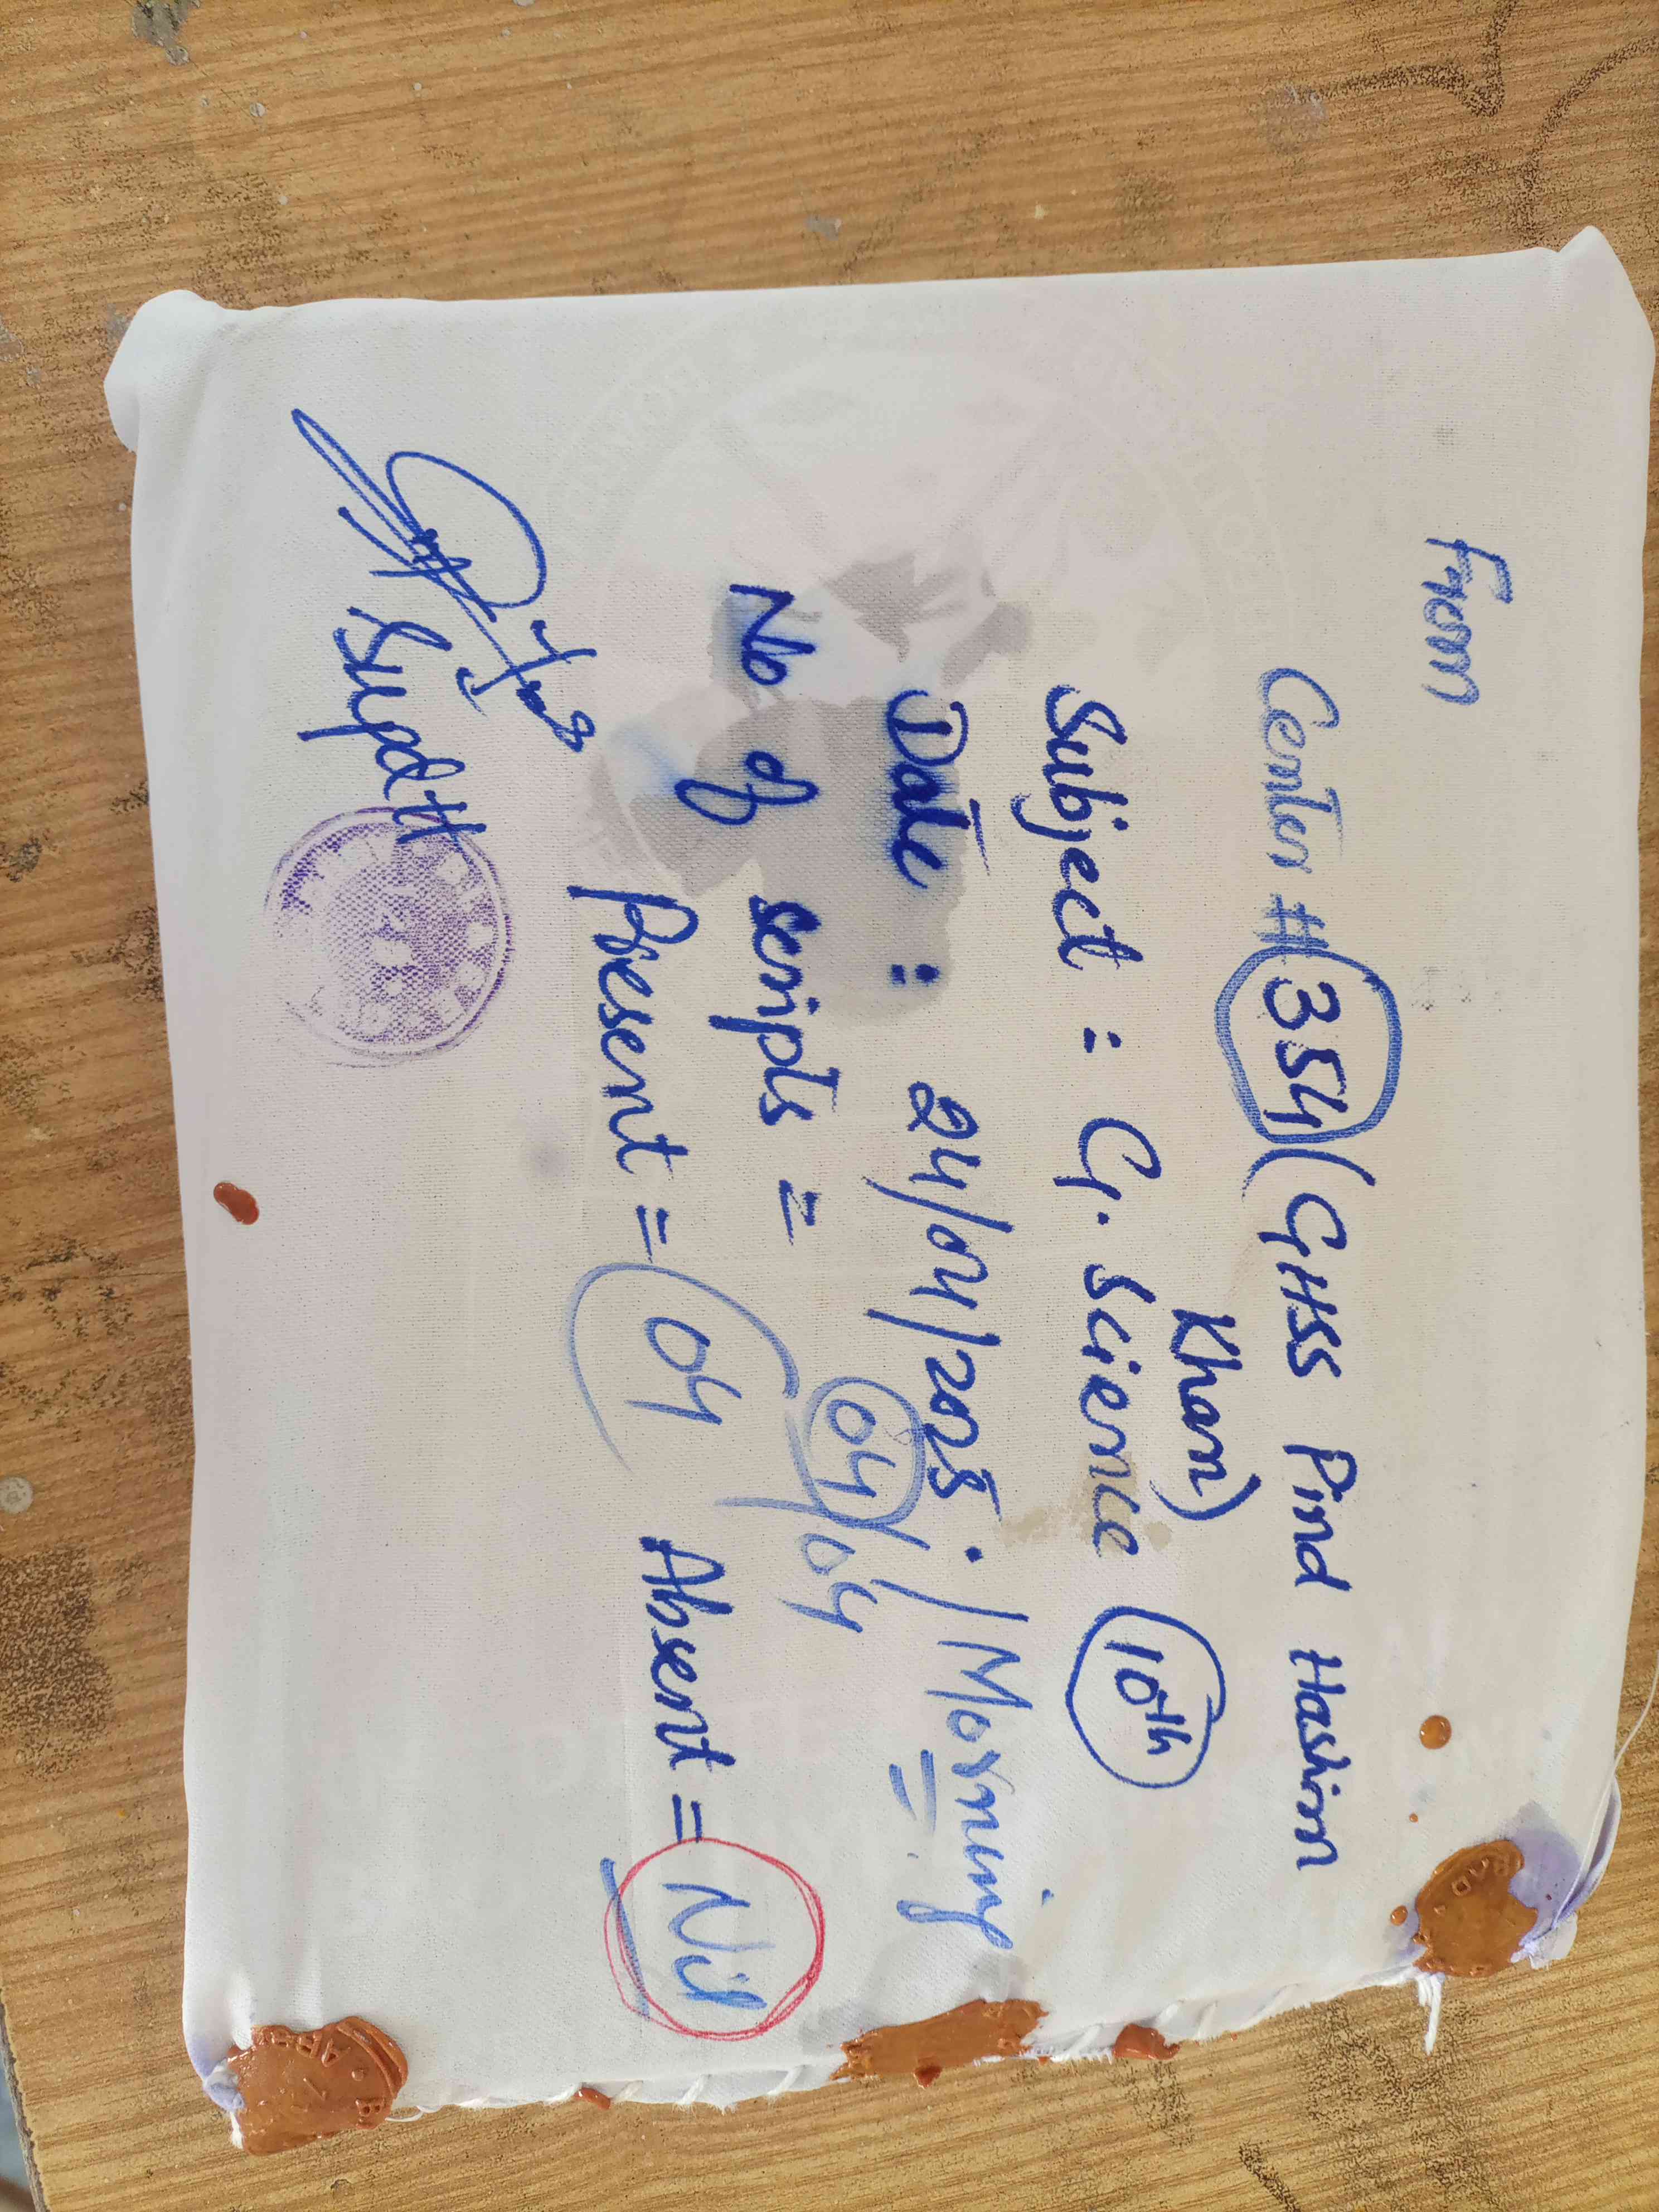 From
Center # 354 (GHSS Pind Hashim
Khan)
Subject : G. Science 10th
Date : 24/04/2025. / Morning
No of scripts = 04/04
Present = 04 Absent = Nil
Supdtt